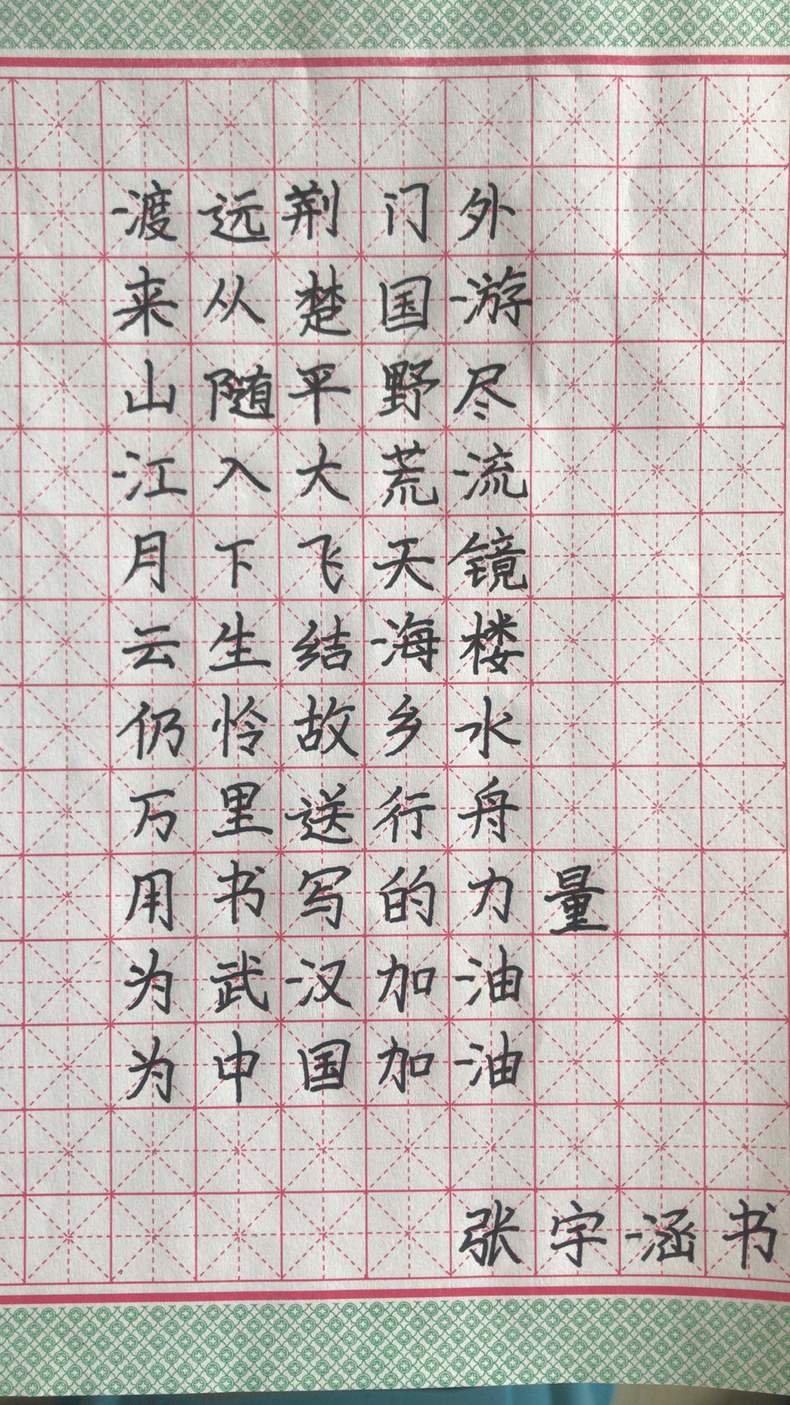 渡远荆门外
来从楚国游
山随平野尽
江入大荒流
月下飞天镜
云生结海楼
仍怜故乡水
万里送行舟
用书写的力量
为武汉加油
为中国加油
张宇涵书